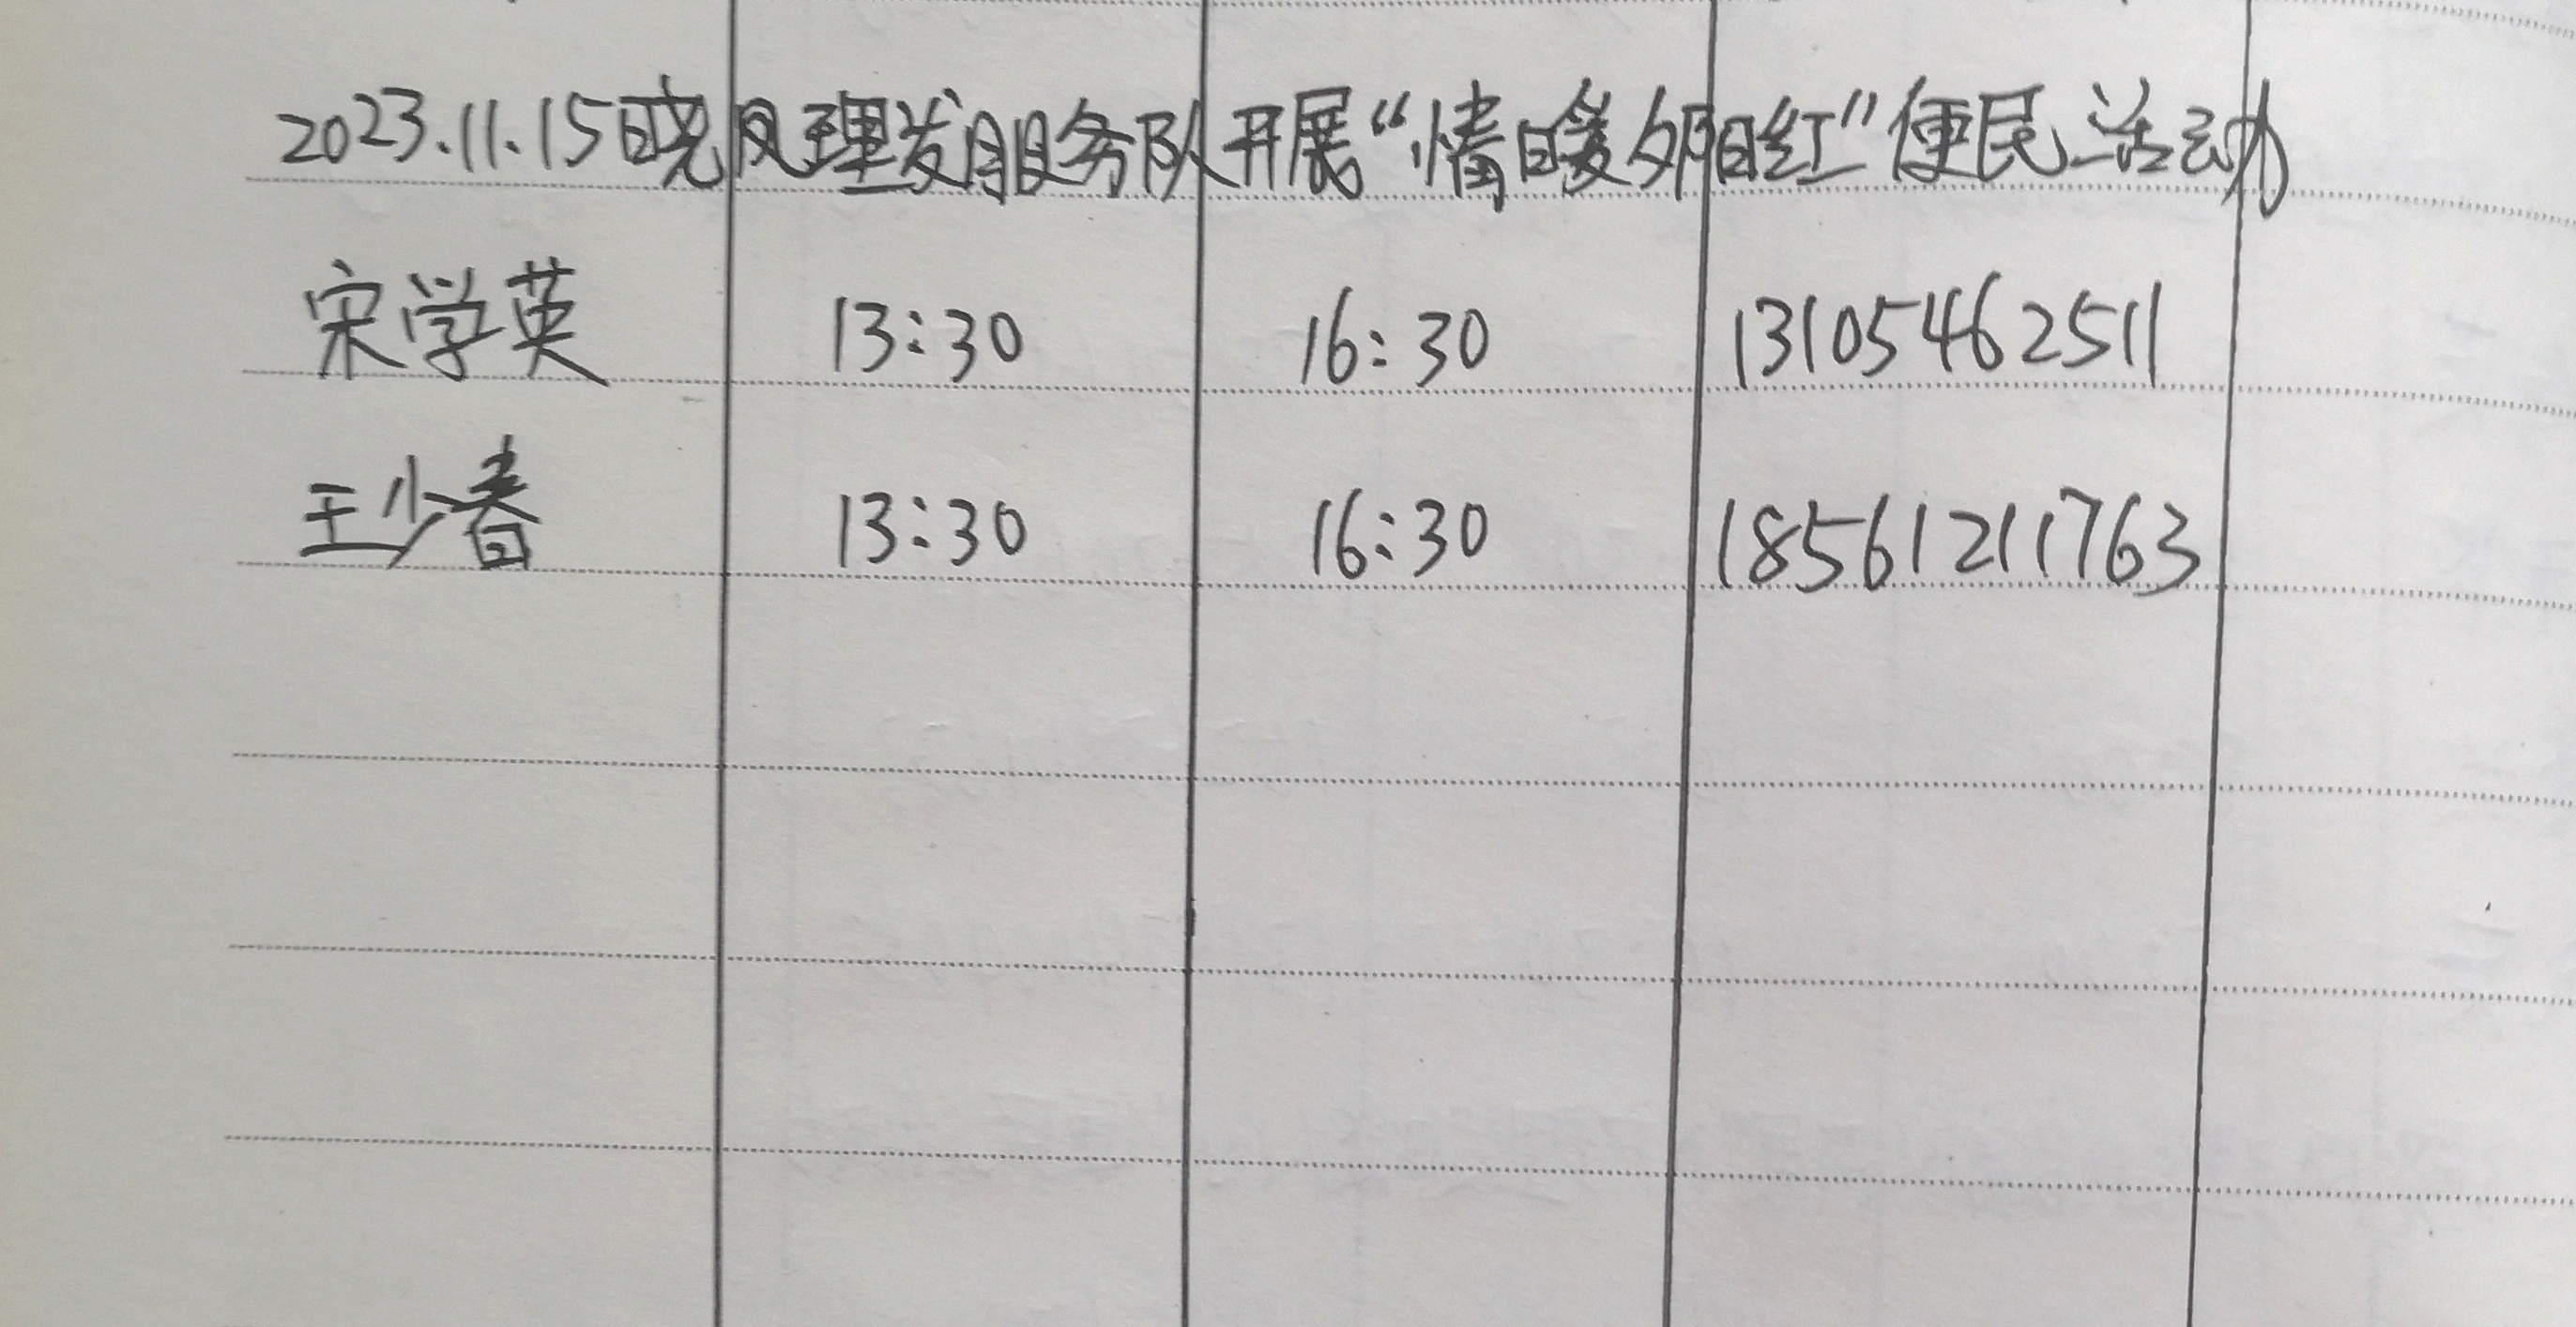 2023.11.15晓风理发服务队开展“情暖夕阳红”便民活动
宋学英 13:30 16:30 13105462511
王少春 13:30 16:30 18561211763